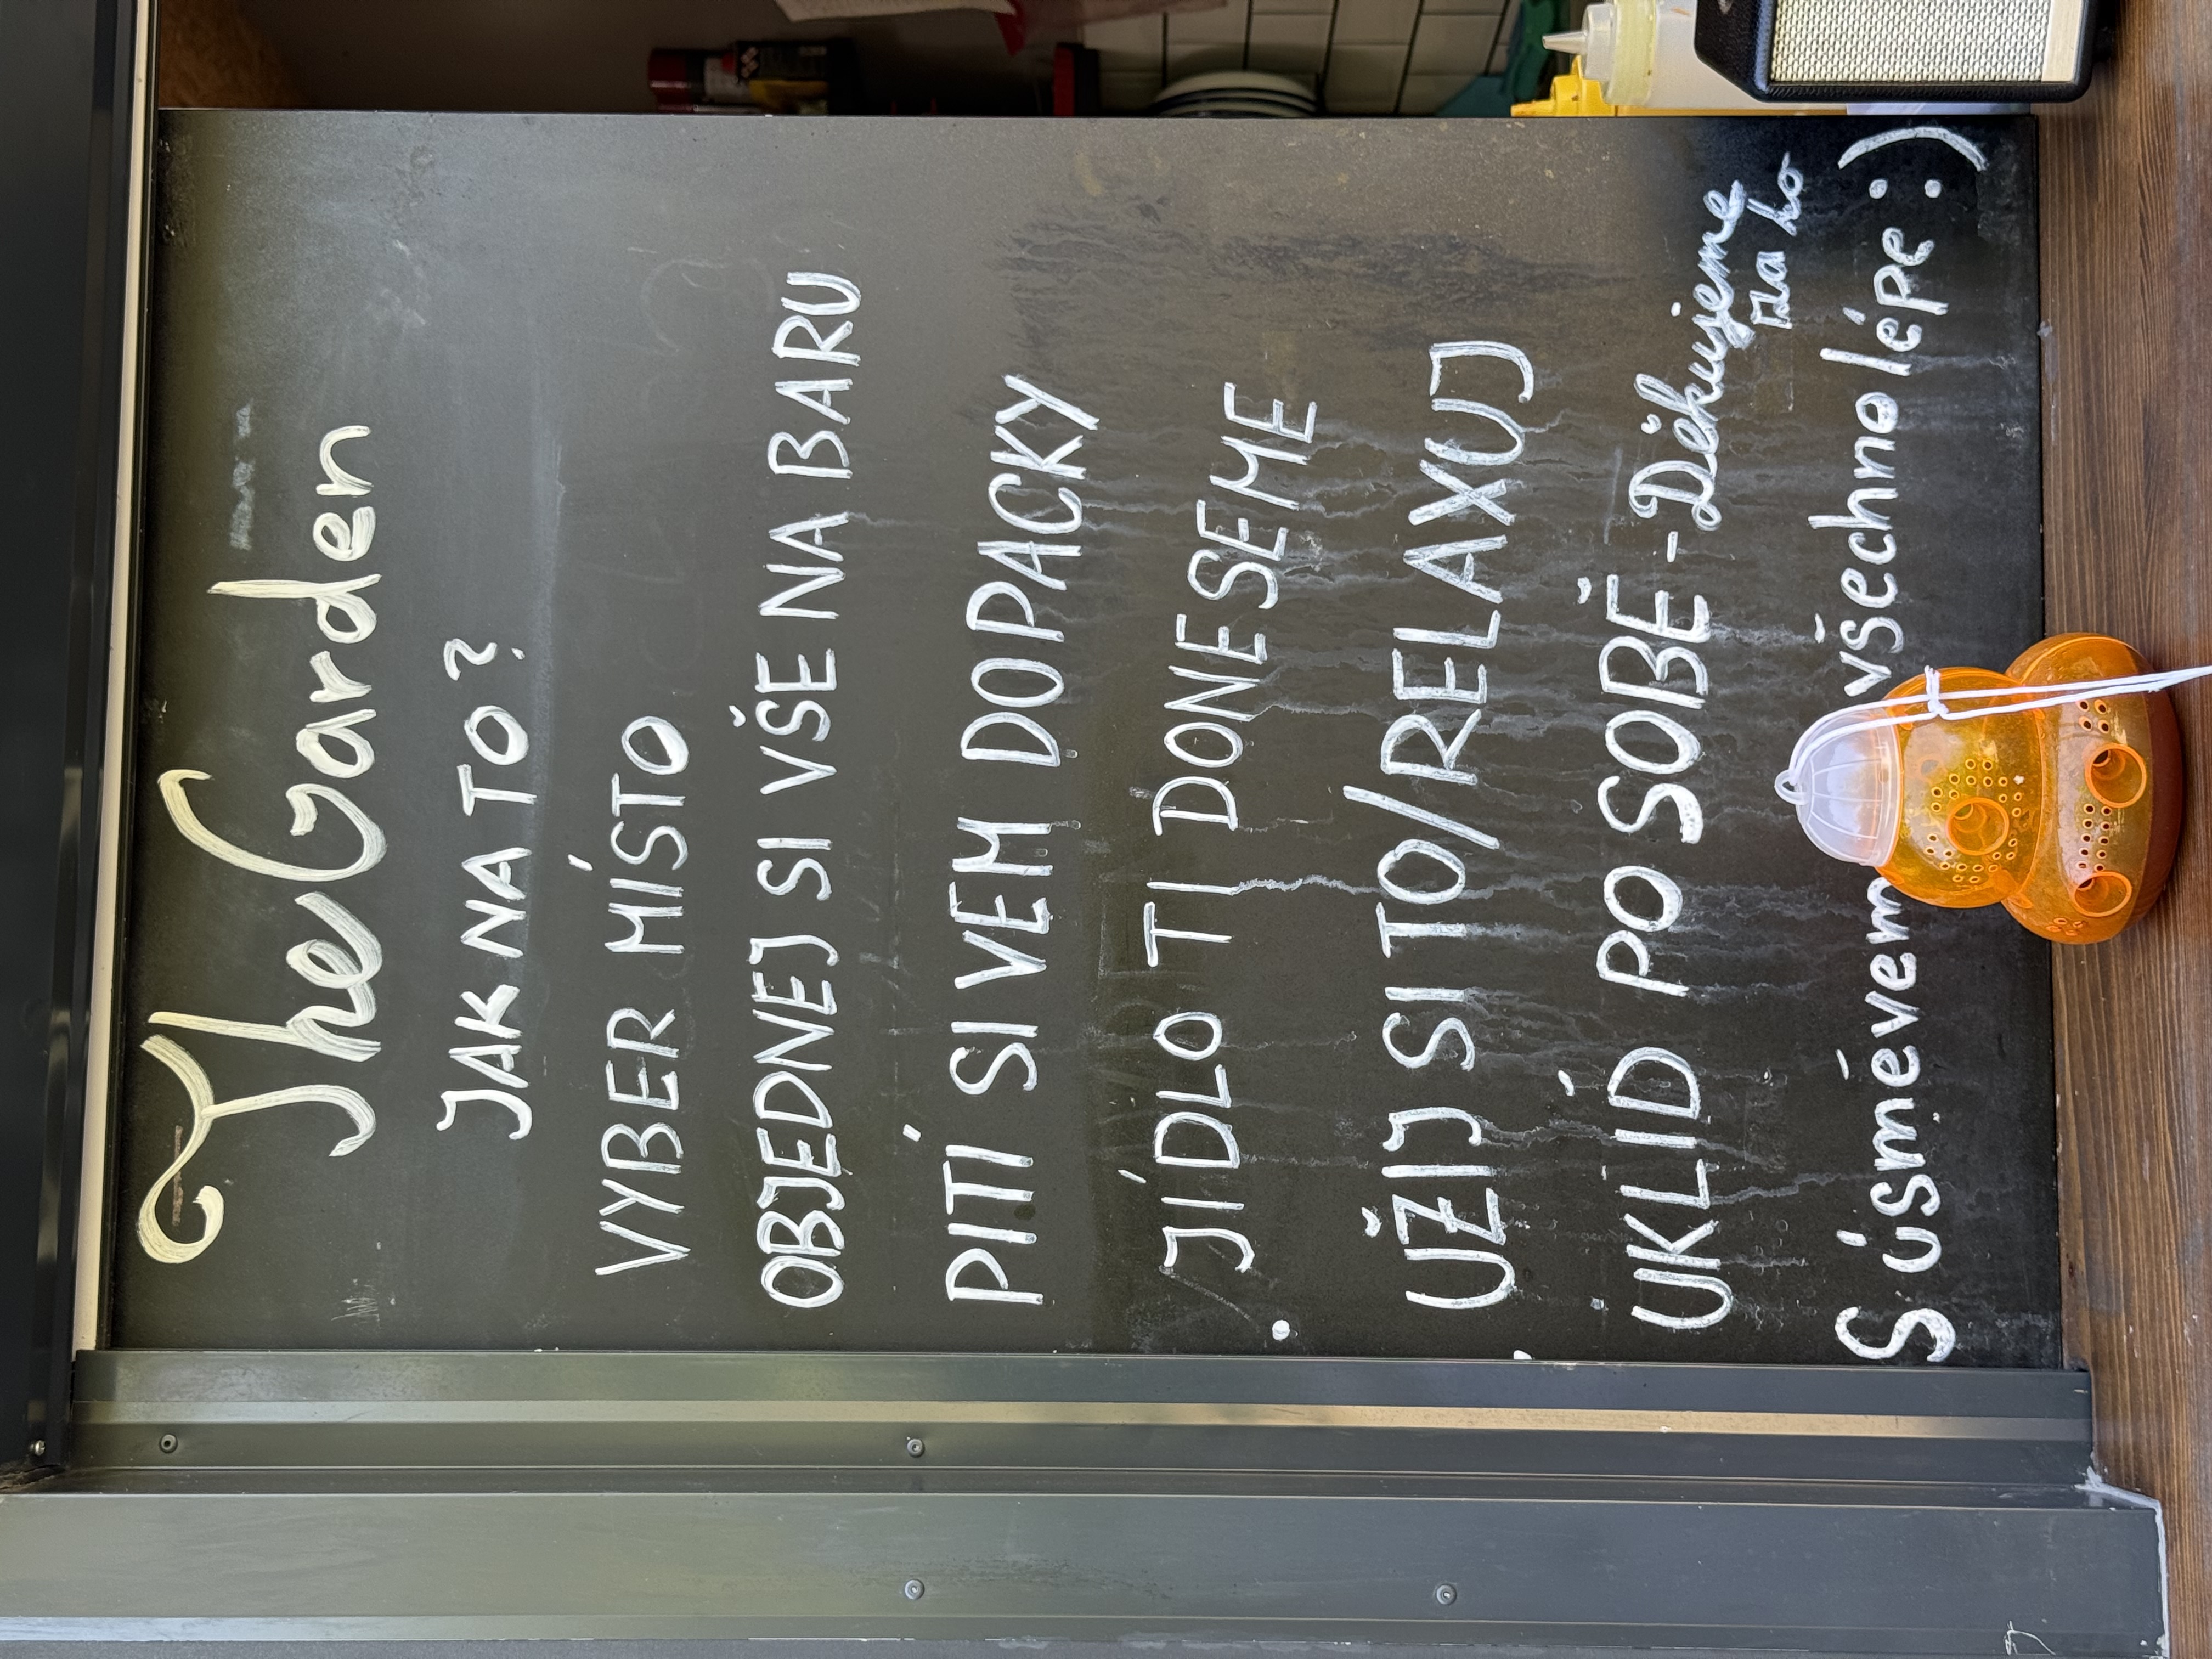 The Garden
JAK NA TO?
VYBER MÍSTO
OBJEDNEJ SI VŠE NA BARU
PITÍ SI VEM DO PACKY
JÍDLO TI DONESEME
UŽIJ SI TO/RELAXUJ
UKLIĎ PO SOBĚ - Děkujeme
za to
S úsměvem všechno lépe :)